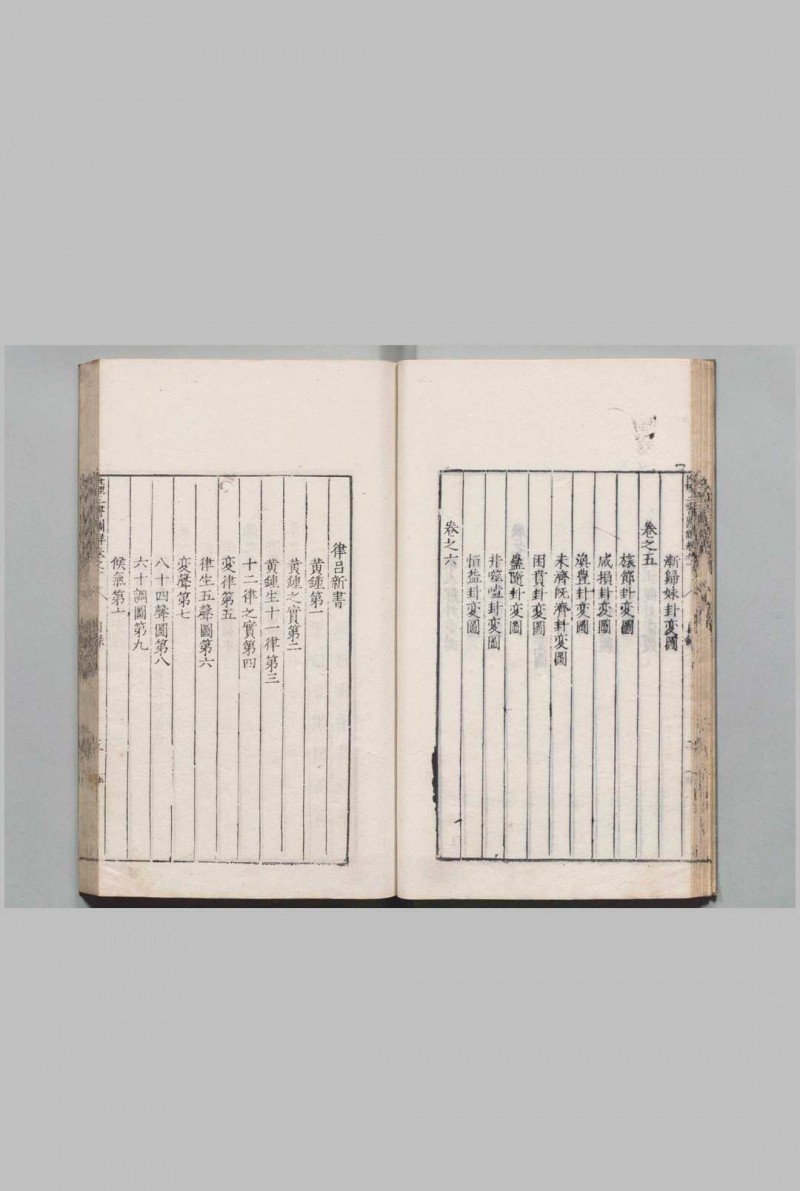 漸歸妹卦变圖
卷之五
旅節卦变圖
咸損卦变圖
渙豐卦变圖
未濟既濟卦变圖
困賁卦变圖
蠱隨卦变圖
井噬嗑卦变圖
恒益卦变圖
卷之六
律吕新書
黃鍾第一
黃鍾之實第二
黃鍾生十一律第三
十二律之實第四
变律第五
律生五聲圖第六
变聲第七
八十四聲圖第八
六十調圖第九
候氣第十